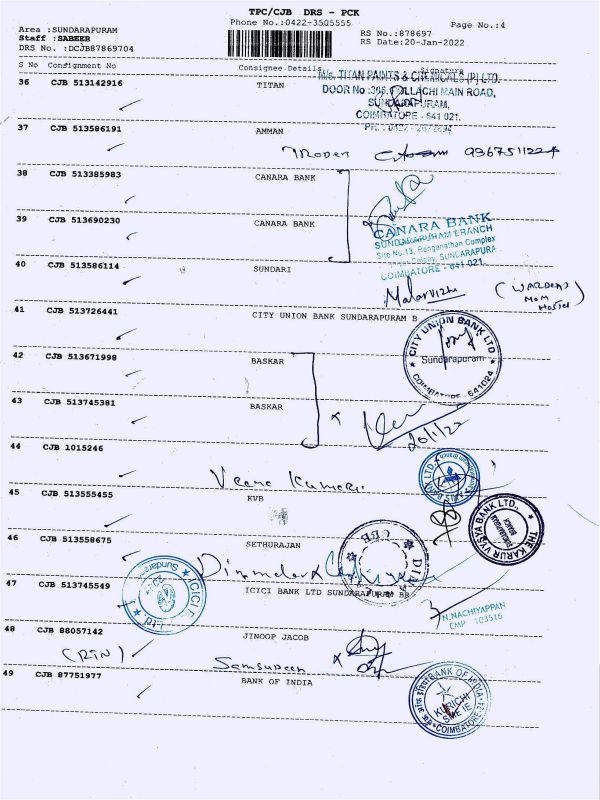 TPC/CJB DRS - PCK
Phone No.:0422-3505555
Page No.:4
Area :SUNDARAPURAM
Staff :SABEER
DRS No. :DCJB87869704
RS No.:878697
RS Date:20-Jan-2022
S No Consignment No Consignee Details Signature
36 CJB 513142916 TITAN
M/s. TITAN PAINTS & CHEMICALS (P) LTD.
DOOR No :396, POLLACHI MAIN ROAD,
SUNDARAPURAM,
COIMBATORE - 641 021.
37 CJB 513586191 AMMAN
38 CJB 513385983 CANARA BANK
39 CJB 513690230 CANARA BANK
CANARA BANK
SUNDARAPURAM BRANCH
Site No.13, Renganathan Complex
Colony, SUNDARAPURA
COIMBATORE - 641 021.
40 CJB 513586114 SUNDARI
Malarvizhi (WARDEN)
MOM
Hostel
41 CJB 513726441 CITY UNION BANK SUNDARAPURAM B
CITY UNION BANK LTD
Sundarapuram
COIMBATORE - 641024
42 CJB 513671998 BASKAR
43 CJB 513745381 BASKAR
20/1/22
44 CJB 1015246
Veena Kumari
45 CJB 513555455 KVB
THE KARUR VYSYA BANK LTD.
SUNDARAPURAM
BRANCH
46 CJB 513558675 SETHURAJAN
47 CJB 513745549 ICICI BANK LTD SUNDARAPURAM BR
ICICI
Sundara
N.NACHIYAPPAN
EMP 103516
48 CJB 88057142 JINOOP JACOB
(RTN) Samsudeen
49 CJB 87751977 BANK OF INDIA
BANK OF INDIA
KURICHI
SME IE
COIMBATORE-21